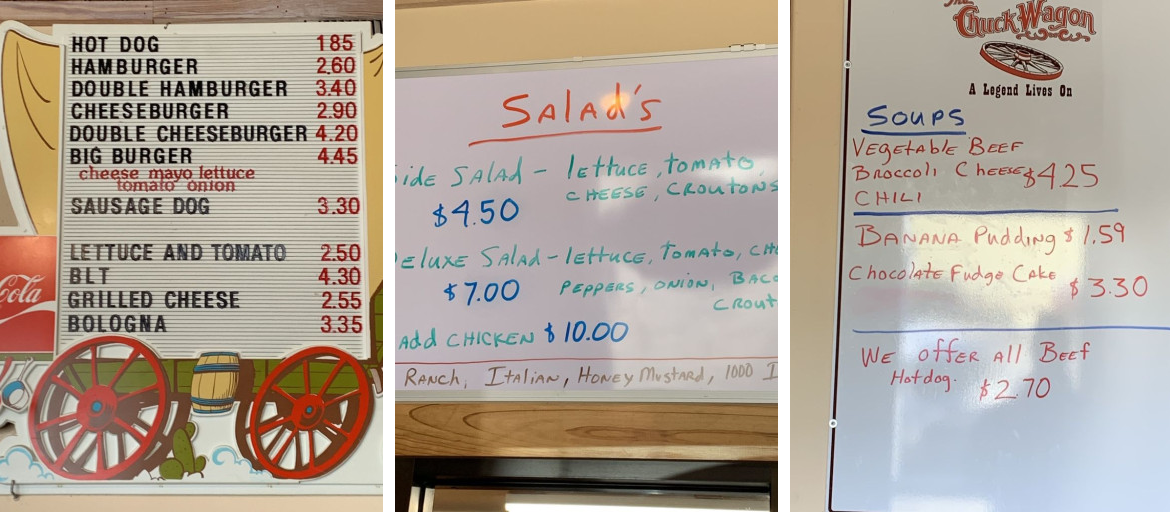 HOT DOG 185
HAMBURGER 2.60
DOUBLE HAMBURGER 3.40
CHEESEBURGER 2.90
DOUBLE CHEESEBURGER 4.20
BIG BURGER 4.45
cheese mayo lettuce
tomato onion
SAUSAGE DOG 3.30
LETTUCE AND TOMATO 2.50
BLT 4.30
GRILLED CHEESE 2.55
BOLOGNA 3.35
Cola
Salad's
ide Salad - lettuce, Tomato,
CHEESE, CROUTONS
$4.50
eluxe Salad - lettuce, Tomato, CH
$7.00 PEPPERS, ONION, BACO
CROUT
Add CHICKEN $10.00
RANCH, ITALIAN, HONEY MUSTARD, 1000 I
The
Chuck Wagon
A Legend Lives On
SOUPS
Vegetable BEEF
Broccoli Cheese $425
CHILI
BANANA Pudding $1.59
Chocolate Fudge Cake
$3.30
WE offer All Beef
Hotdog. $2.70